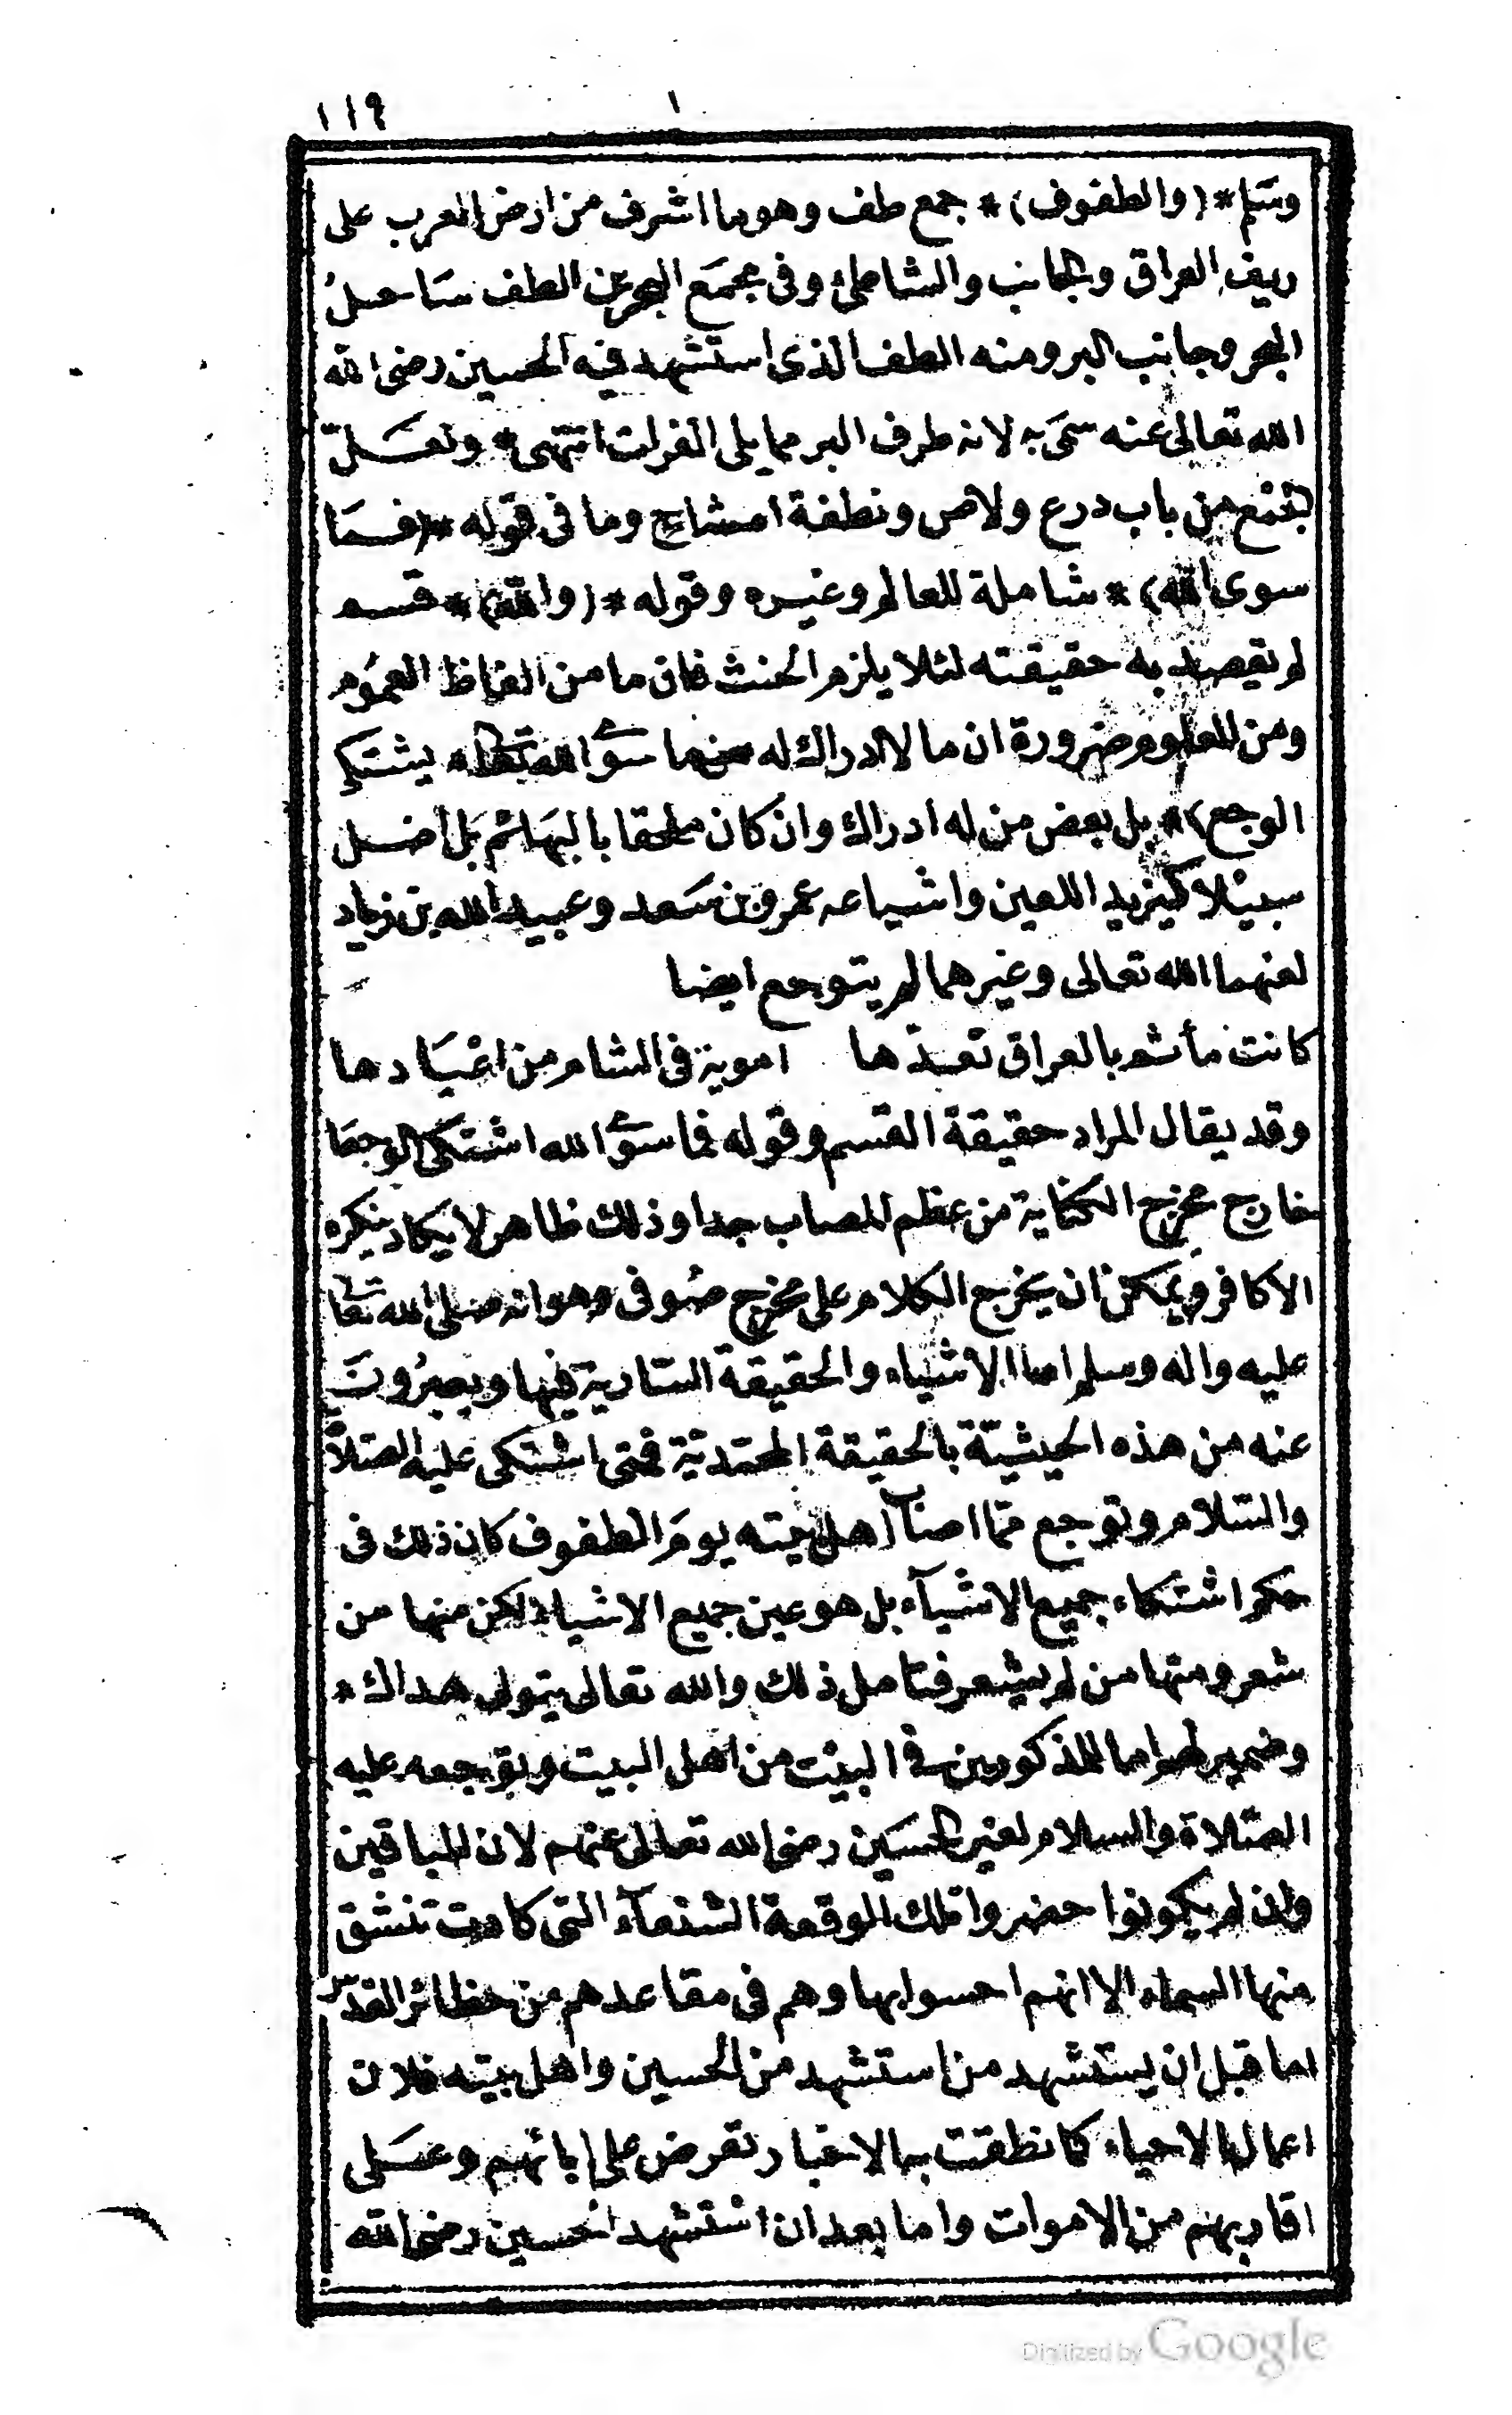 ١١٩
وسلم *(والطفوف)* جمع طف وهو ما اشرف من ارض العرب على
ريف العراق والجانب والشاطئ وفى مجمع البحرين الطف ساحل
البحر وجانب البر ومنه الطف الذى استشهد فيه الحسين رضى الله
الله تعالى عنه سمى به لانه طرف البر مما يلى الفرات انتهى * ولعل
الجمع من باب درع ولاص ونطفة امشاج وما فى قوله *(فما
سوى الله)* شاملة للعالم وغيره وقوله *(والله)* قسم
لم يقصد به حقيقته لئلا يلزم الحنث فان ما من الفاظ العموم
ومن المعلوم ضرورة ان ما لا ادراك له سوى الله تعالى * يشتكى
الوجع)* بل بعض من له ادراك وان كان ملحقا بالبهائم بل اضل
سبيلا كيزيد اللعين واشياعه عمرو بن سعد وعبيد الله بن زياد
لعنهما الله تعالى وغيرهما لم يتوجع ايضا
كانت مأتم بالعراق تعدها اموية فى الشام من اعيادها
وقد يقال المراد حقيقة القسم وقوله فما سوى الله اشتكى الوجعا
خارج مخرج الكناية من عظم المصاب جدا وذلك ظاهر لا يكاد ينكره
الا كافر ويمكن ان يخرج الكلام على مخرج صوفى وهو انه صلى الله تعا
عليه واله وسلم اصل الاشياء والحقيقة السارية فيها ويعبرون
عنه من هذه الحيثية بالحقيقة المحمدية فمتى اشتكى عليه الصلاة
والسلام وتوجع مما اصاب اهل بيته يوم الطفوف كان ذلك فى
حكم اشتكاء جميع الاشيآء بل هو عين جميع الاشياء لكن منها من
شعر ومنها من لم يشعر فتامل ذلك والله تعالى يتولى هداك *
وضمير لهم اما للمذكورين فى البيت من اهل البيت وتوجعه عليه
الصلاة والسلام لغير الحسين رضى الله تعالى عنهم لان الباقين
وان لم يكونوا حضروا تلك الوقعة الشنعآء التى كادت تنشق
منها السماء الا انهم احسوا بها وهم فى مقاعدهم من حظائر القدس
اما قبل ان يستشهد من استشهد من الحسين واهل بيته فلان
اعمال الاحياء كما نطقت به الاخبار تعرض على ابائهم وعلى
اقاربهم من الاموات واما بعد ان استشهد الحسين رضى الله
Digitized by Google